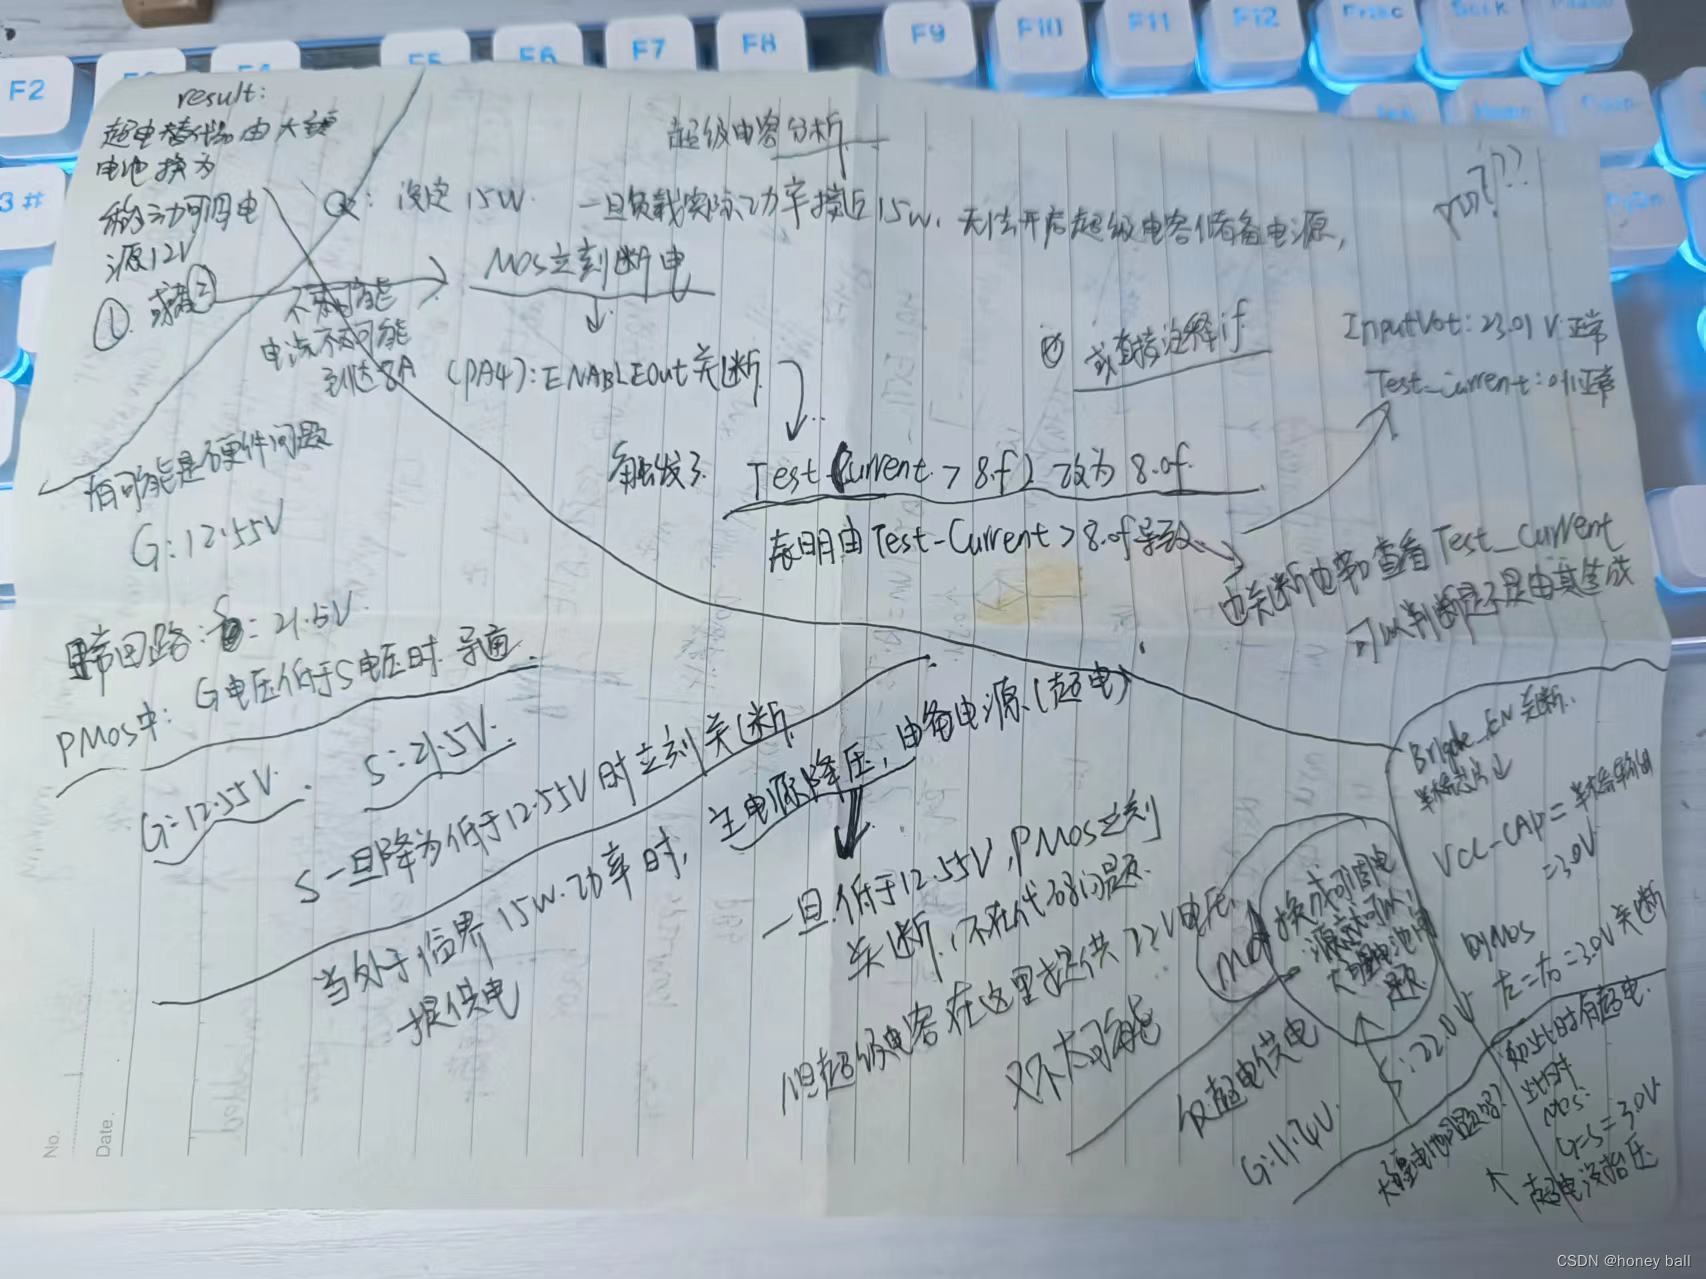 F2
F5
F6
F7
F8
F9
F10
F11
F12
3 #
result:
超电替代品由大疆
电池换为
移动可调电
源12V
① 或者②
不太可能
电流不可能
到达8A
超级电容分析
Q: 设定 15W. 一旦负载实际功率接近15W, 无法开启超级电容储备电源,
MOS立刻断电
(PA4): ENABLEOut关断
② 或直接注释if
InputVot: 23.01V 正常
Test_Current: 正常
触发了 Test_Current > 8.f) 改为 8.0f
表明由 Test-Current > 8.0f 导致
由关断也带 查看 Test_Current
可以判断是不是由其造成
有可能是硬件问题
G: 12.55V
回路: S: 21.5V
PMos中: G电压低于S电压时导通
G: 12.55V. S: 21.5V.
S一旦降为低于12.55V时立刻关断
当处于临界15W功率时, 主电源降压, 由备电源(超电)
提供电
一旦低于12.55V, PMos立刻
关断, 不存在代码问题.
但超级电容在这里提供22V电压,
又不太可能
仅超电供电
G: 11.4V
S: 22.0
换成可调电
源
大疆电池问
题
大疆电池问题吗?
EN关断.
半桥芯片↓
VCC-CAP = 半桥
=3.0V
MOS
左=右=3.0V关断
如此时有超电.
此时
Mos:
G=S=3.0V
超电没抬压
No.
Date.
CSDN @honey ball